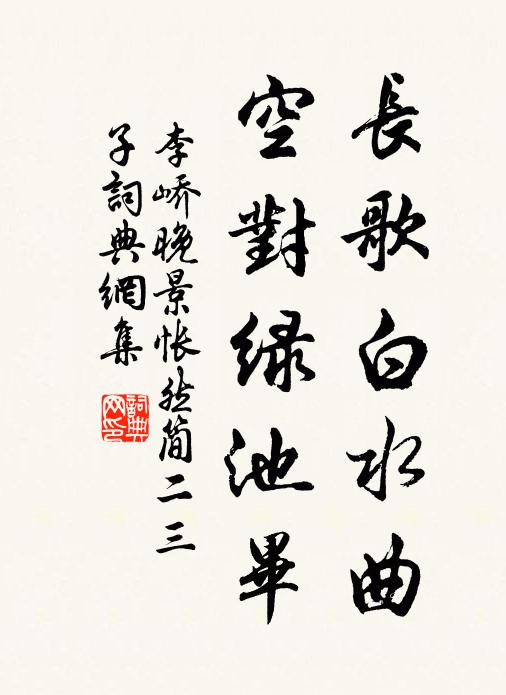 長歌白水曲
空對绿池畢
李嶠晚景悵然簡二三
子詞典網集
詞典
网印